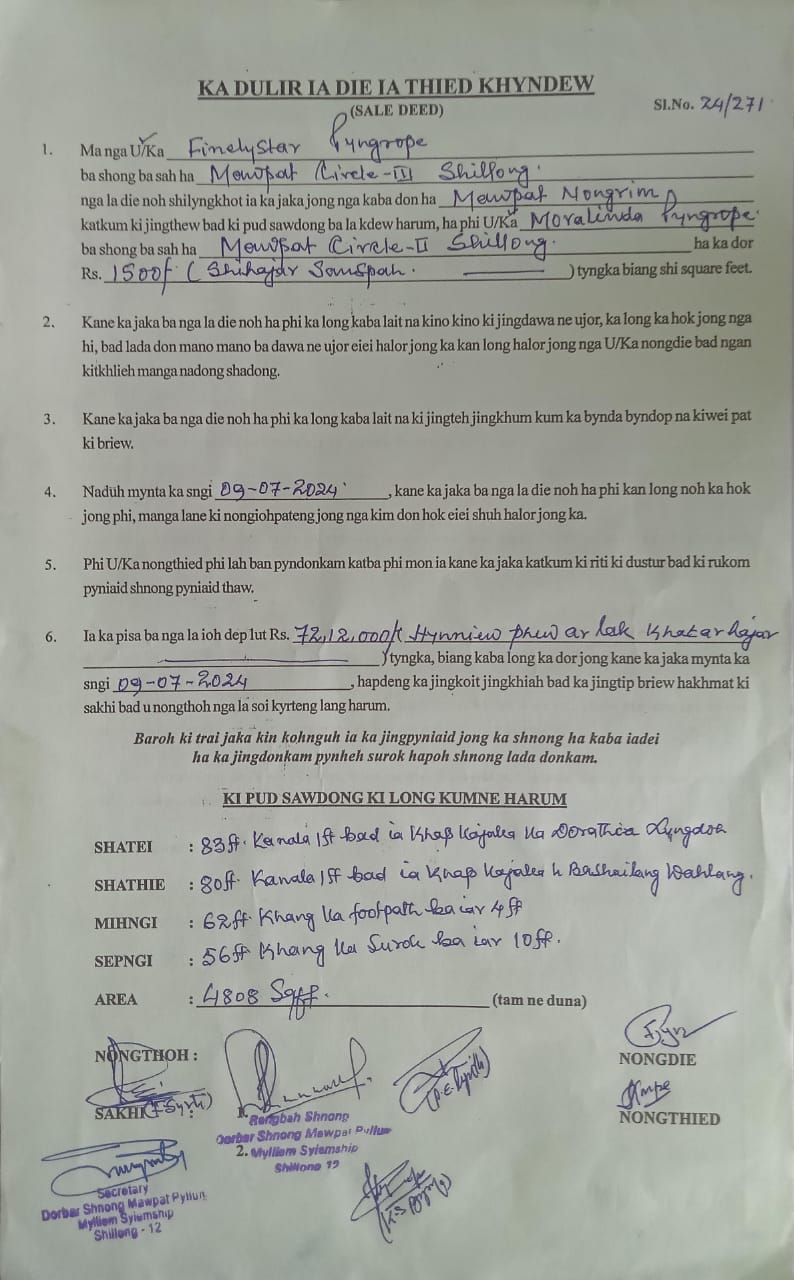 KA DULIR IA DIE IA THIED KHYNDEW
(SALE DEED)
Sl.No. 24/271
1. Ma nga U/Ka FinelyStar Pyngrope
ba shong ba sah ha Mawpat Circle-III Shillong.
nga la die noh shilyngkhot ia ka jaka jong nga kaba don ha Mawpat Nongrim
katkum ki jingthew bad ki pud sawdong ba la kdew harum, ha phi U/Ka Moralinda Pyngrope.
ba shong ba sah ha Mawpat Circle-II Shillong. ha ka dor
Rs. 1500/- (Shihajar Sanspah. ) tyngka biang shi square feet.
2. Kane ka jaka ba nga la die noh ha phi ka long kaba lait na kino kino ki jingdawa ne ujor, ka long ka hok jong nga
hi, bad lada don mano mano ba dawa ne ujor eiei halor jong ka kan long halor jong nga U/Ka nongdie bad ngan
kitkhlieh manga nadong shadong.
3. Kane ka jaka ba nga die noh ha phi ka long kaba lait na ki jingteh jingkhum kum ka bynda byndop na kiwei pat
ki briew.
4. Naduh mynta ka sngi 09-07-2024 , kane ka jaka ba nga la die noh ha phi kan long noh ka hok
jong phi, manga lane ki nongiohpateng jong nga kim don hok eiei shuh halor jong ka.
5. Phi U/Ka nongthied phi lah ban pyndonkam katba phi mon ia kane ka jaka katkum ki riti ki dustur bad ki rukom
pyniaid shnong pyniaid thaw.
6. Ia ka pisa ba nga la ioh dep lut Rs. 72,12,000/( Hynniew phew ar lak Khatar hajar
) tyngka, biang kaba long ka dor jong kane ka jaka mynta ka
sngi 09-07-2024 , hapdeng ka jingkoit jingkhiah bad ka jingtip briew hakhmat ki
sakhi bad u nongthoh nga la soi kyrteng lang harum.
Baroh ki trai jaka kin kohnguh ia ka jingpyniaid jong ka shnong ha kaba iadei
ha ka jingdonkam pynheh surok hapoh shnong lada donkam.
KI PUD SAWDONG KI LONG KUMNE HARUM
SHATEI : 83ft. Kanala 1ft bad ia Khap Kajaka Ka Dorathica Lyngdoh
SHATHIE : 80ft. Kanala 1ft bad ia Khap Kajaka U Bashailang Wahlang.
MIHNGI : 62ft. Khang Ka footpath ba iar 4ft
SEPNGI : 56ft Khang Ka Surok ba iar 10ft.
AREA : 4808 Sqft. (tam ne duna)
NONGTHOH :
NONGDIE
SAKHI : 1.
NONGTHIED
Rangbah Shnong
Dorbar Shnong Mawpat Pyllun
2. Mylliem Syiemship
Shillong 12
Secretary
Dorbar Shnong Mawpat Pyllun
Mylliem Syiemship
Shillong - 12